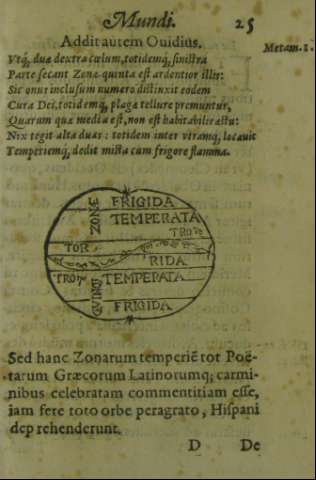 Mundi. 25
Addit autem Ovidius. Metam. 1.
Vtq́; duæ dextra cœlum, totidemq́; sinistra
Parte secant Zonæ quinta est ardentior illis:
Sic onus inclusum numero distinxit eodem
Cura Dei, totidemq́; plagæ tellure premuntur,
Quarum quæ media est, non est habitabilis æstu:
Nix tegit alta duas: totidem inter vtramq; locauit
Temperiemq́; dedit mista cum frigore flamma.
FRIGIDA
ZONÆ
TEMPERATA
TRO
TOR
RIDA
TRO
TEMPERATA
QVINQ
FRIGIDA
Sed hanc Zonarum temperiē tot Poë-
tarum Græcorum Latinorumq; carmi-
nibus celebratam commentitiam esse,
iam fere toto orbe peragrato, Hispani
deprehenderunt.
D De